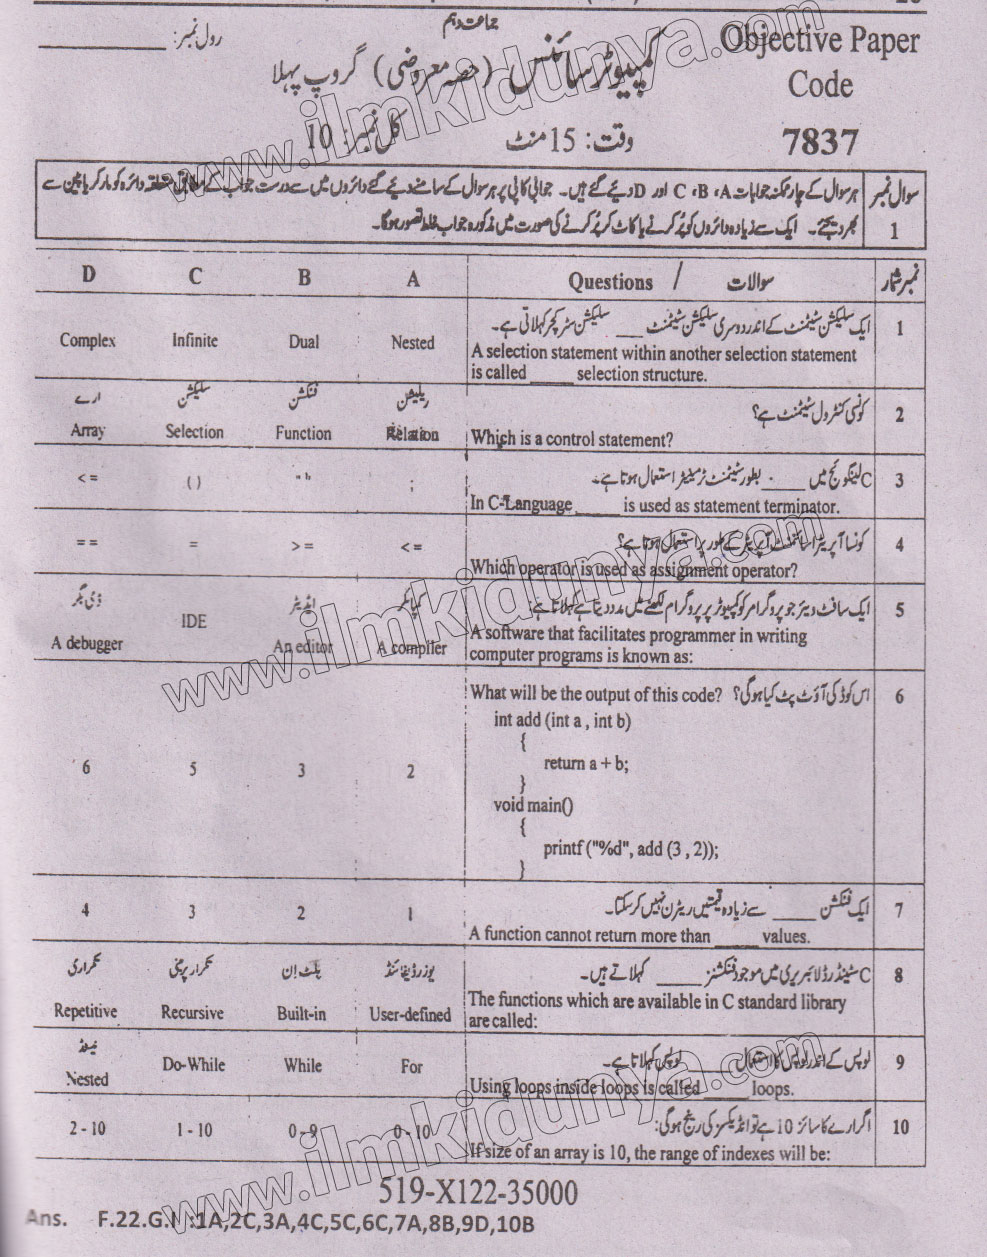 جماعت دہم
رول نمبر:
کمپیوٹر سائنس (حصہ معروضی) گروپ پہلا
Objective Paper
Code
7837
وقت: 15 منٹ
کل نمبر: 10
سوال نمبر 1
ہر سوال کے چار ممکنہ جوابات A، B، C اور D دیئے گئے ہیں۔ جوابی کاپی پر ہر سوال کے سامنے دیئے گئے دائروں میں سے درست جواب کے مطابق متعلقہ دائرہ کو مارکر یا پین سے
بھر دیجئے۔ ایک سے زیادہ دائروں کو پُر کرنے یا کاٹ کر پُر کرنے کی صورت میں مذکورہ جواب غلط تصور ہوگا۔
D C B A Questions / سوالات نمبر شمار
1 ایک سلیکشن سٹیٹمنٹ کے اندر دوسری سلیکشن سٹیٹمنٹ ____ سلیکشن سٹرکچر کہلاتی ہے۔
A selection statement within another selection statement
is called _____ selection structure.
Complex Infinite Dual Nested
2 کونسی کنٹرول سٹیٹمنٹ ہے؟
Which is a control statement?
ارے سلیکشن فنکشن ریلیشن
Array Selection Function Relation
3 C لینگوئج میں _____ بطور سٹیٹمنٹ ٹرمینیٹر استعمال ہوتا ہے۔
In C-Language _____ is used as statement terminator.
< = ( ) " " ;
4 کونسا آپریٹر اسائنمنٹ آپریٹر کے طور پر استعمال ہوتا ہے؟
Which operator is used as assignment operator?
= = = > = < =
5 ایک سافٹ ویئر جو پروگرامر کو کمپیوٹر پر پروگرام لکھنے میں مدد دیتا ہے کہلاتا ہے:
A software that facilitates programmer in writing
computer programs is known as:
ڈی بگر IDE ایڈیٹر کمپائلر
A debugger An editor A compiler
6 اس کوڈ کی آؤٹ پٹ کیا ہوگی؟ What will be the output of this code?
int add (int a , int b)
{
return a + b;
}
void main()
{
printf ("%d", add (3 , 2));
}
6 5 3 2
7 ایک فنکشن _____ سے زیادہ قیمتیں ریٹرن نہیں کر سکتا۔
A function cannot return more than _____ values.
4 3 2 1
8 C سٹینڈرڈ لائبریری میں موجود فنکشنز _____ کہلاتے ہیں۔
The functions which are available in C standard library
are called:
تکراری تکرار پر مبنی بلٹ اِن یوزر ڈیفائنڈ
Repetitive Recursive Built-in User-defined
9 لوپس کے اندر لوپس کا استعمال _____ لوپس کہلاتا ہے۔
Using loops inside loops is called _____ loops.
نیسٹڈ
Nested Do-While While For
10 اگر ارے کا سائز 10 ہے تو انڈیکسز کی رینج ہوگی:
If size of an array is 10, the range of indexes will be:
2 - 10 1 - 10 0 - 9 0 - 10
519-X122-35000
Ans. F.22.G.I :1A,2C,3A,4C,5C,6C,7A,8B,9D,10B
www.ilmkidunya.com
www.ilmkidunya.com
www.ilmkidunya.com